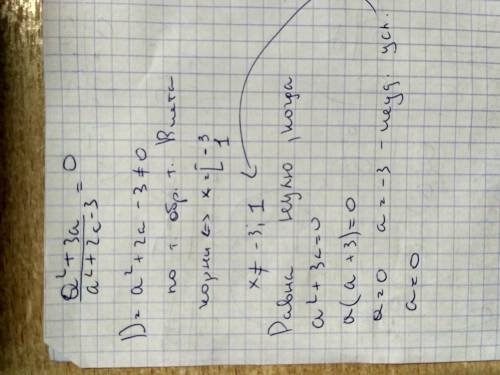 a² + 3a / a² + 2a - 3 = 0
D = a² + 2a - 3 ≠ 0
по т. обр. т. Виета
корни <=> x = [ -3
1
x ≠ -3; 1
Равна нулю, когда
a² + 3a = 0
a(a + 3) = 0
a = 0 a = -3 - неуд. усл.
a = 0